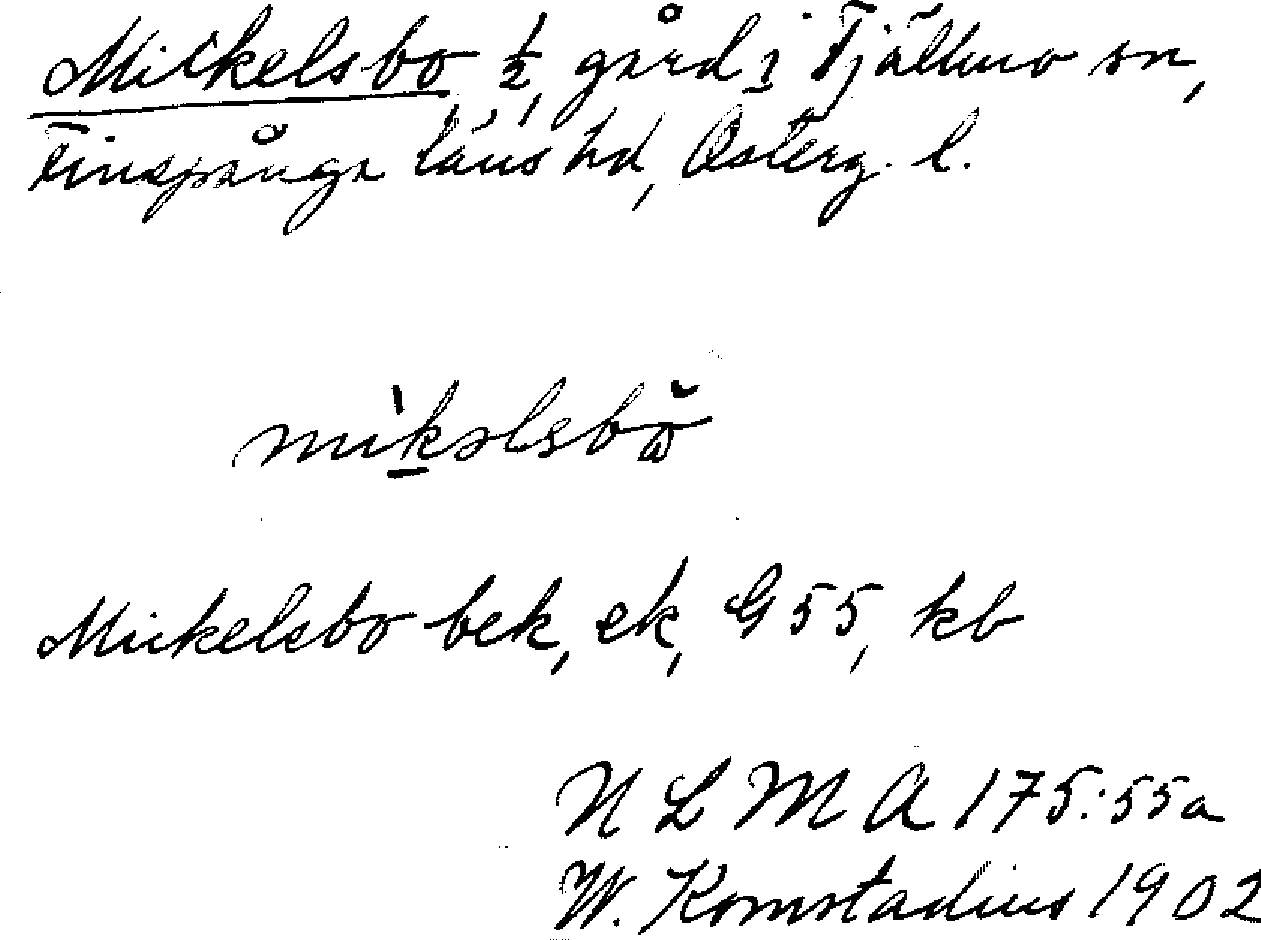 Mickelsbo ½, gård i Tjällmo sn,
Finspånga läns hd, Österg. l.
mìkəlsbω̆
Mickelsbo bek, ek, G 55, kb
N L M A 175:55a
W. Komstadius 1902